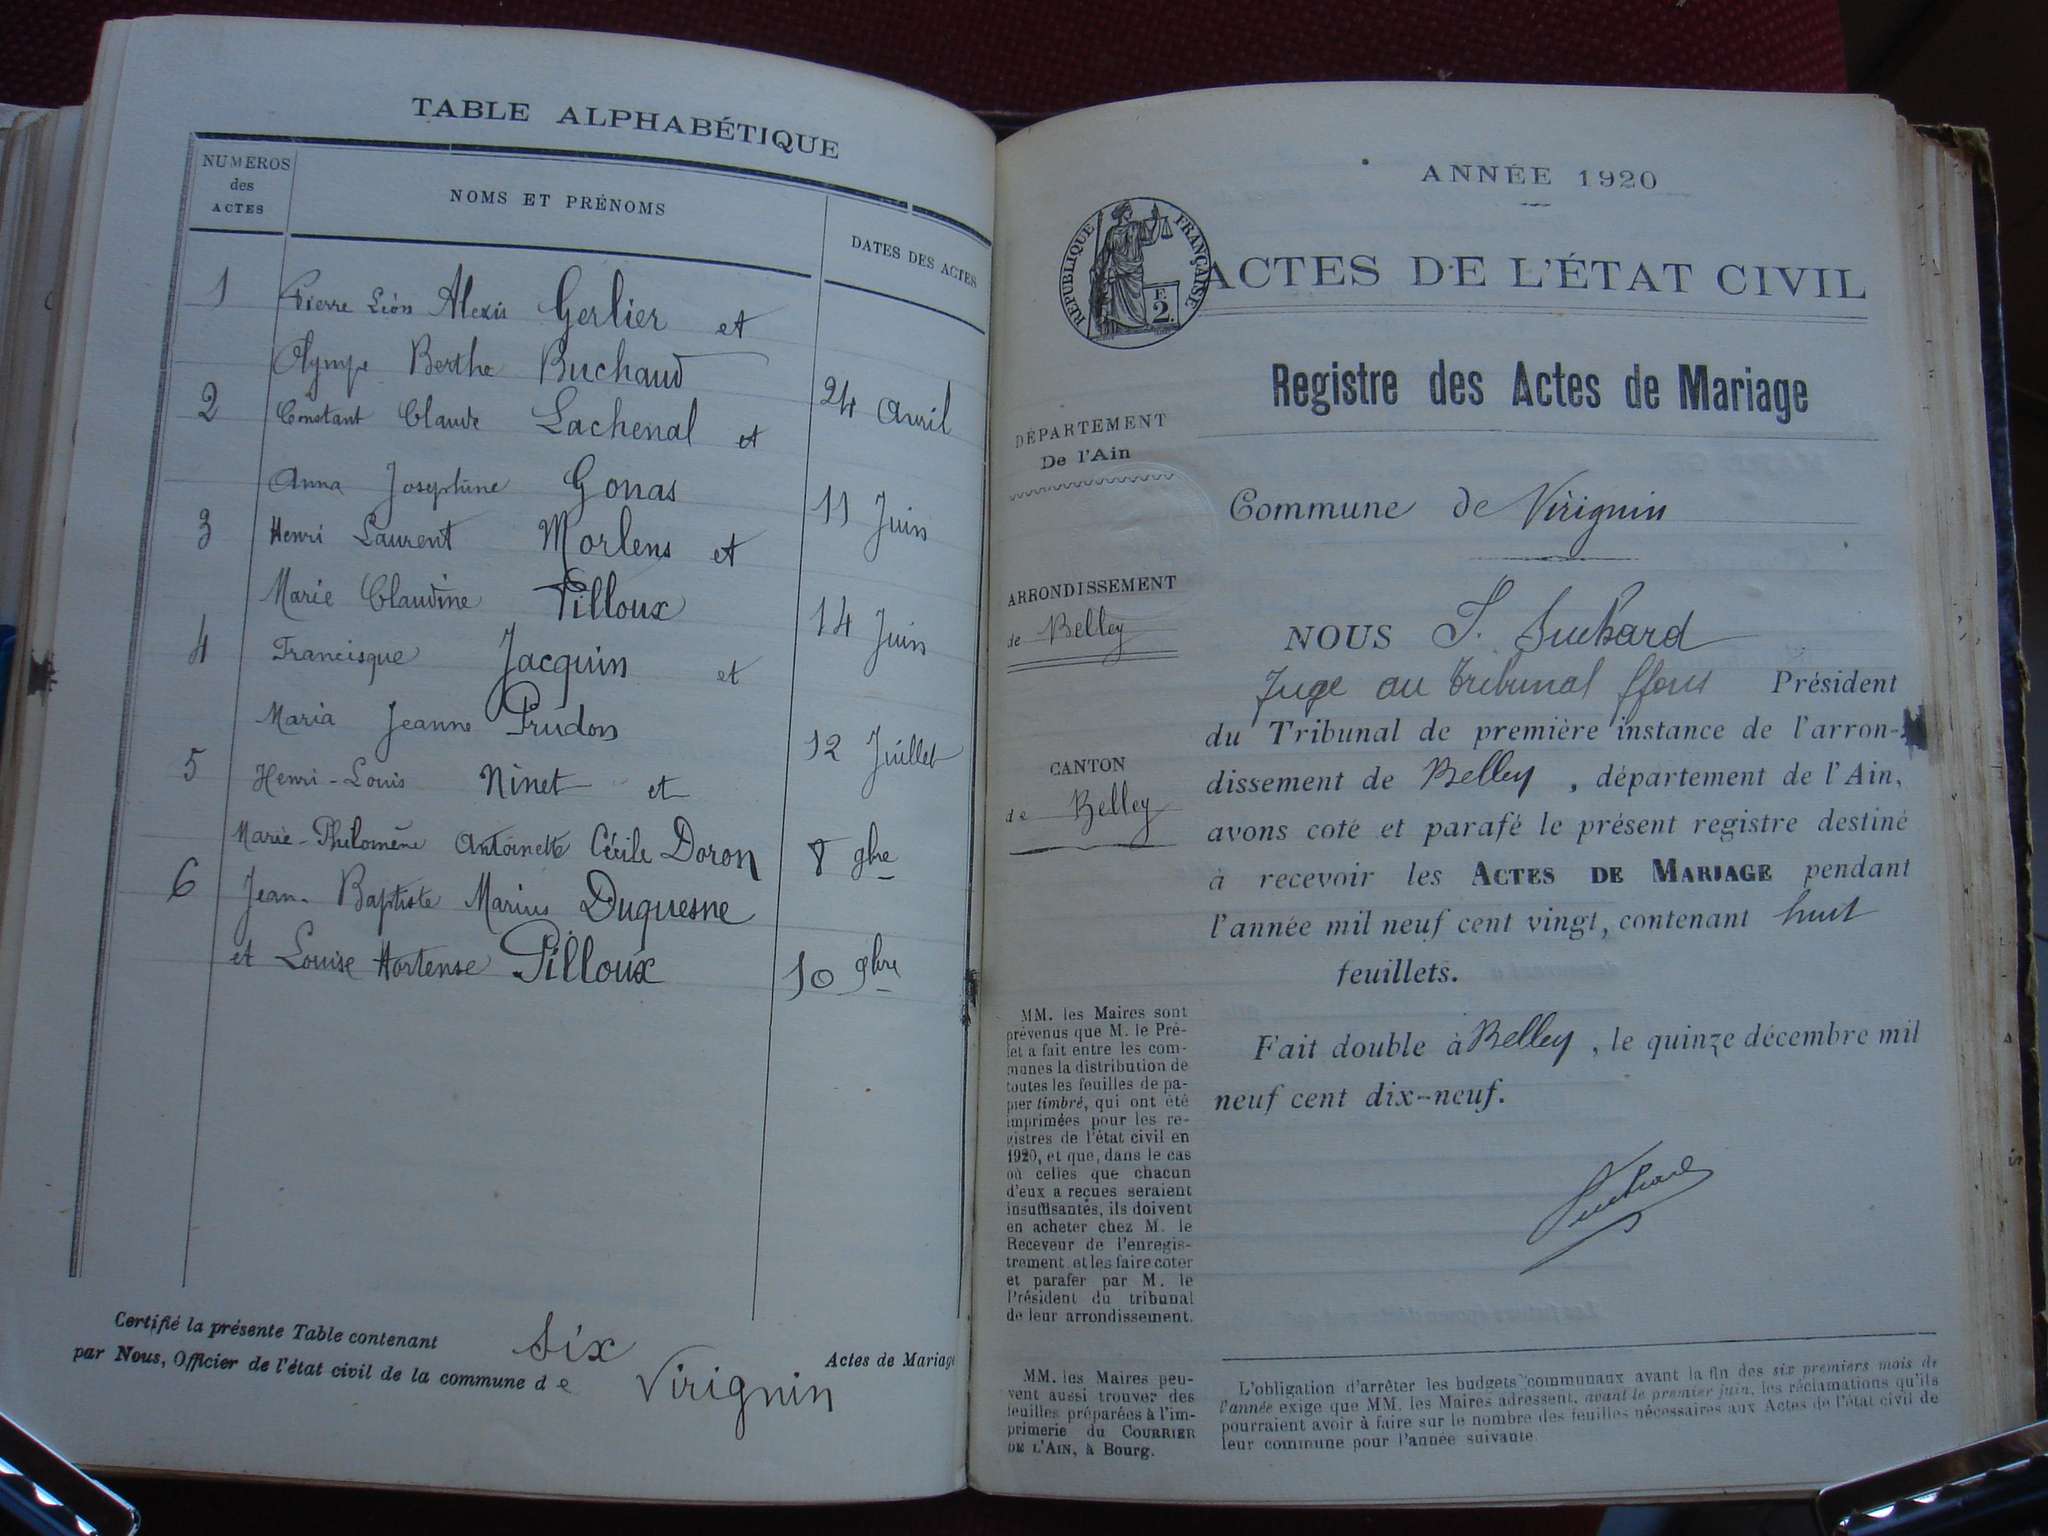 TABLE ALPHABÉTIQUE
NUMÉROS
des
ACTES
NOMS ET PRÉNOMS
DATES DES ACTES
1 Pierre Léon Alexis Gerlier et
Olympe Berthe Buchaud 24 avril
2 Constant Claude Lachenal et
Anna Joséphine Gonas 11 Juin
3 Henri Laurent Morlens et
Marie Claudine Pilloux 14 Juin
4 Francisque Jacquin et
Maria Jeanne Prudon 12 Juillet
5 Henri-Louis Ninet et
Marie-Philomène Antoinette Cécile Doron 8 9bre
6 Jean-Baptiste Marius Duquesne
et Louise Hortense Pilloux 10 9bre
Certifié la présente Table contenant six Actes de Mariage
par Nous, Officier de l'état civil de la commune de Virignin
ANNÉE 1920
RÉPUBLIQUE FRANÇAISE
E
2.
ACTES DE L'ÉTAT CIVIL
Registre des Actes de Mariage
DÉPARTEMENT
De l'Ain
Commune de Virignin
ARRONDISSEMENT
de Belley
CANTON
de Belley
NOUS
Juge au Tribunal ffons Président
du Tribunal de première instance de l'arron-
dissement de Belley, département de l'Ain,
avons coté et parafé le présent registre destiné
à recevoir les ACTES DE MARIAGE pendant
l'année mil neuf cent vingt, contenant huit
feuillets.
Fait double à Belley, le quinze décembre mil
neuf cent dix-neuf.
MM. les Maires sont
prévenus que M. le Pré-
fet a fait entre les com-
munes la distribution de
toutes les feuilles de pa-
pier timbré, qui ont été
imprimées pour les re-
gistres de l'état civil en
1920, et que, dans le cas
où celles que chacun
d'eux a reçues seraient
insuffisantes, ils doivent
en acheter chez M. le
Receveur de l'enregis-
trement et les faire coter
et parafer par M. le
Président du tribunal
de leur arrondissement.
MM. les Maires peu-
vent aussi trouver des
feuilles préparées à l'im-
primerie du COURRIER
DE L'AIN, à Bourg.
L'obligation d'arrêter les budgets communaux avant la fin des six premiers mois de
l'année exige que MM. les Maires adressent, avant le premier juin, les réclamations qu'ils
pourraient avoir à faire sur le nombre des feuilles nécessaires aux Actes de l'état civil de
leur commune pour l'année suivante.